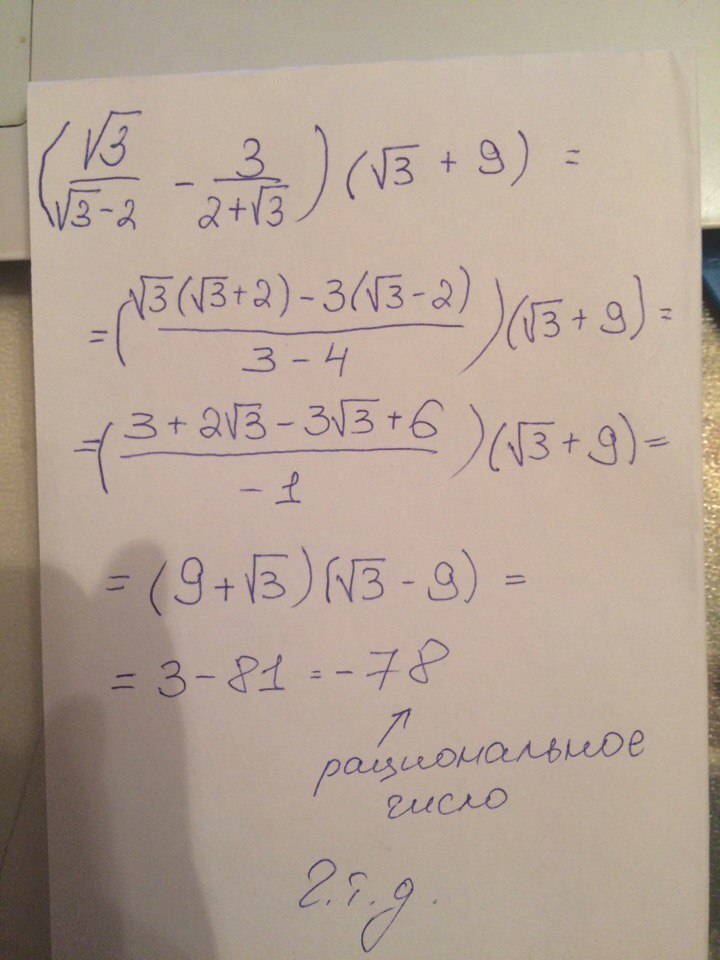 (√3/(√3-2) - 3/(2+√3)) (√3 + 9) =
= ((√3(√3+2) - 3(√3-2))/(3-4)) (√3 + 9) =
= ((3 + 2√3 - 3√3 + 6)/(-1)) (√3 + 9) =
= (9 + √3)(√3 - 9) =
= 3 - 81 = -78
рациональное
число
Ч.т.д.